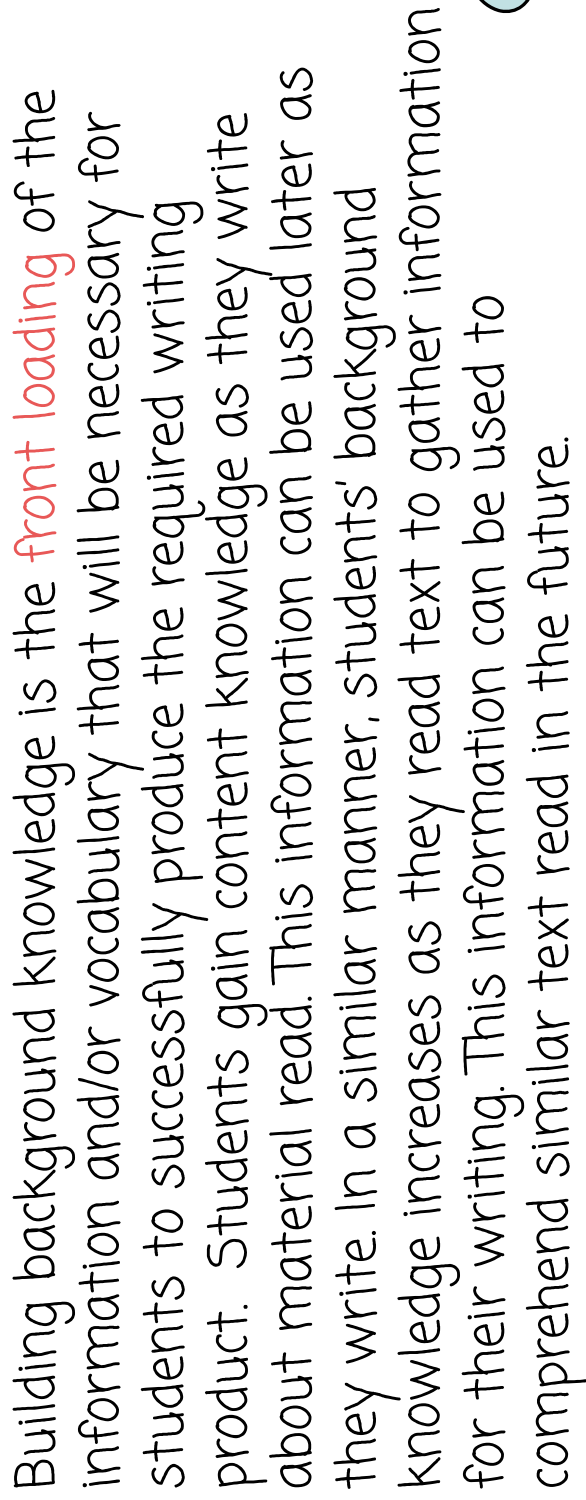 Building background knowledge is the front loading of the
information and/or vocabulary that will be necessary for
students to successfully produce the required writing
product. Students gain content knowledge as they write
about material read. This information can be used later as
they write. In a similar manner, students' background
knowledge increases as they read text to gather information
for their writing. This information can be used to
comprehend similar text read in the future.